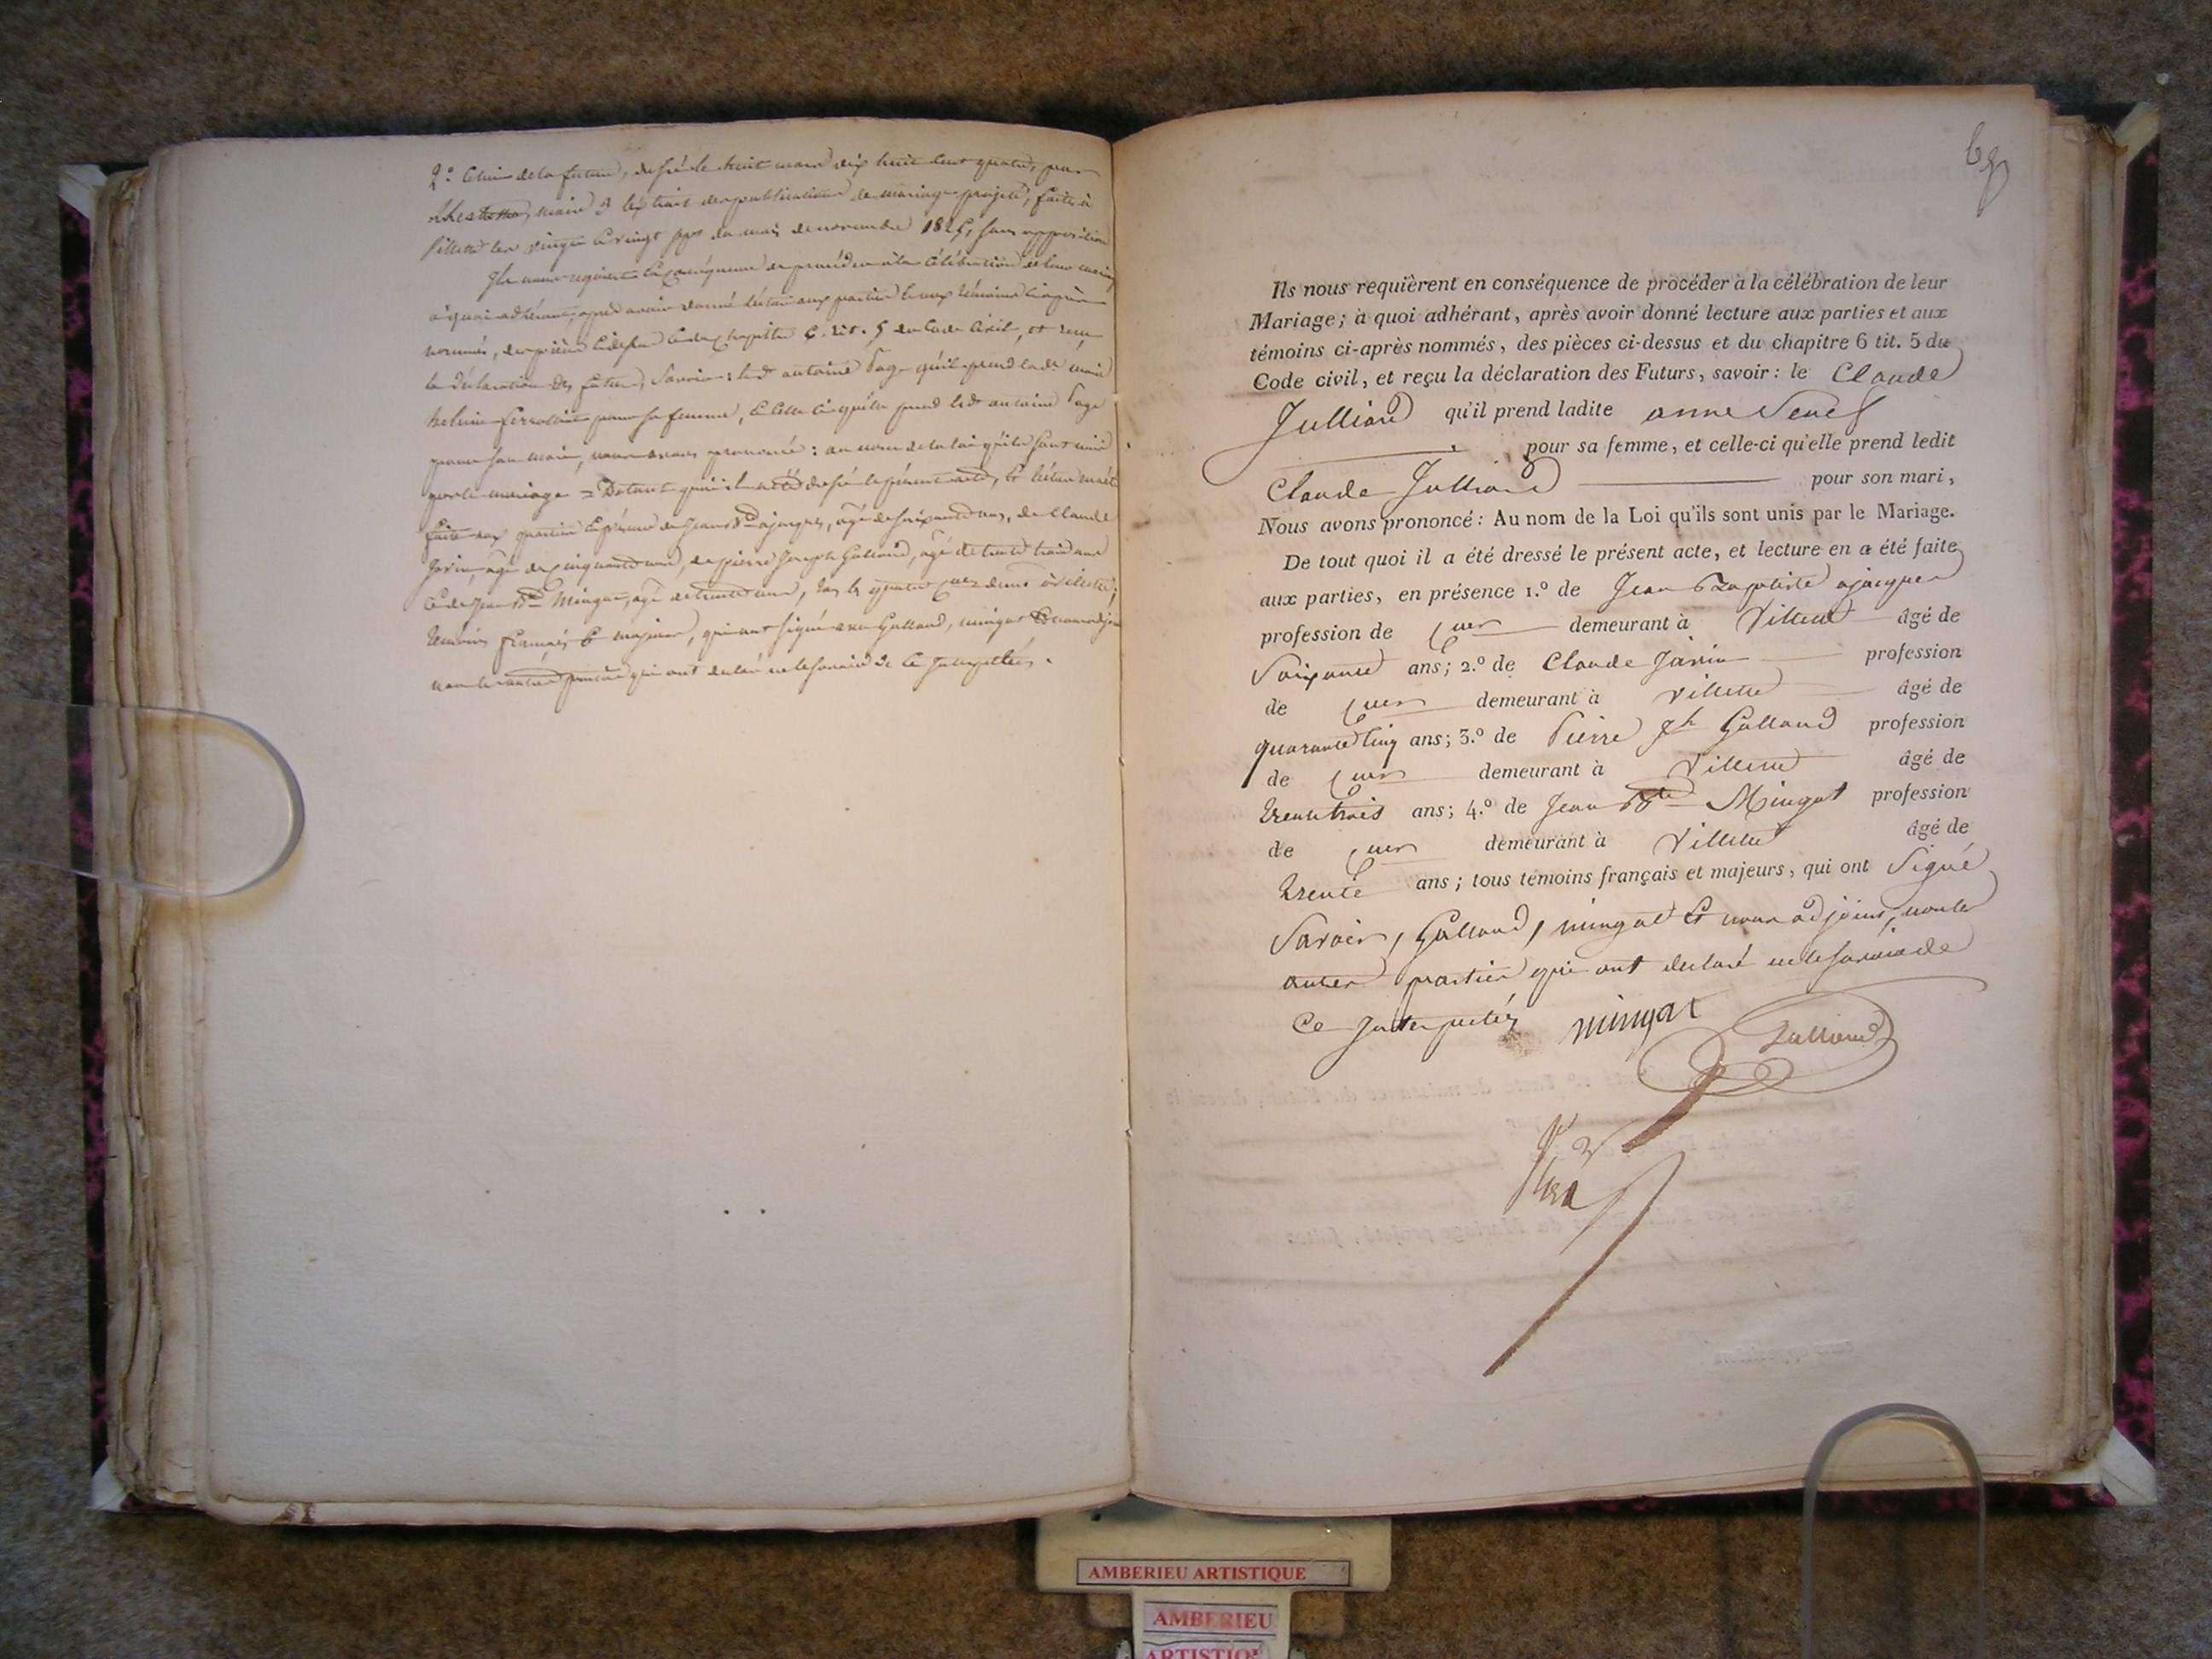 2.° Celui de la future, dressé le huit mars dix huit cent quatre, par
maire 3 l'extrait des publications de mariage projeté, faites à
Villette les vingt & vingt sept du mois de novembre 1825, sans opposition
Ils nous requièrent en conséquence de procéder à la célébration de leur mariage
à quoi adhérant, après avoir donné lecture aux parties & aux témoins ci après
nommés, des pièces ci dessus & du chapitre 6. tit. 5 du Code Civil, et reçu
la déclaration des futurs, savoir : led antoine Page qu'il prend lade marie
pour sa femme, & celle ci qu'elle prend led antoine Page
pour son mari, nous avons prononcé : au nom de la loi qu'ils sont unis
par le mariage = De tout quoi il a été dressé le présent acte, & lecture en a été
faite aux parties en présence de Jean Bte ajacques, âgé de soixante ans, de Claude
Janin, âgé de cinquante ans, de pierre Joseph Galland, âgé de trente trois ans
& de Jean Bte Mingat, âgé de trente ans, tous les quatre à villette,
témoins français & majeurs, qui ont signé savoir Galland, mingat & nous adjoint
non les autres parties qui ont déclaré ne le savoir de ce Interpellées.
69
Ils nous requièrent en conséquence de procéder à la célébration de leur
Mariage ; à quoi adhérant, après avoir donné lecture aux parties et aux
témoins ci-après nommés, des pièces ci-dessus et du chapitre 6 tit. 5 du
Code civil, et reçu la déclaration des Futurs, savoir : le Claude
Julliard qu'il prend ladite anne
pour sa femme, et celle-ci qu'elle prend ledit
Claude Julliard pour son mari,
Nous avons prononcé : Au nom de la Loi qu'ils sont unis par le Mariage.
De tout quoi il a été dressé le présent acte, et lecture en a été faite
aux parties, en présence 1.° de Jean Baptiste ajacques
profession de demeurant à Villette âgé de
Soixante ans ; 2.° de Claude Janin profession
de demeurant à Villette âgé de
quarante cinq ans ; 3.° de Pierre Jh Galland profession
de demeurant à Villette âgé de
trente trois ans ; 4.° de Jean Bte Mingat profession
de demeurant à Villette âgé de
trente ans ; tous témoins français et majeurs, qui ont Signé
Savoir, Galland, mingat & nous adjoint, non les
autres parties qui ont déclaré ne le savoir de
Ce Interpellés mingat
Galland
AMBERIEU ARTISTIQUE
AMBERIEU
ARTISTIQUE